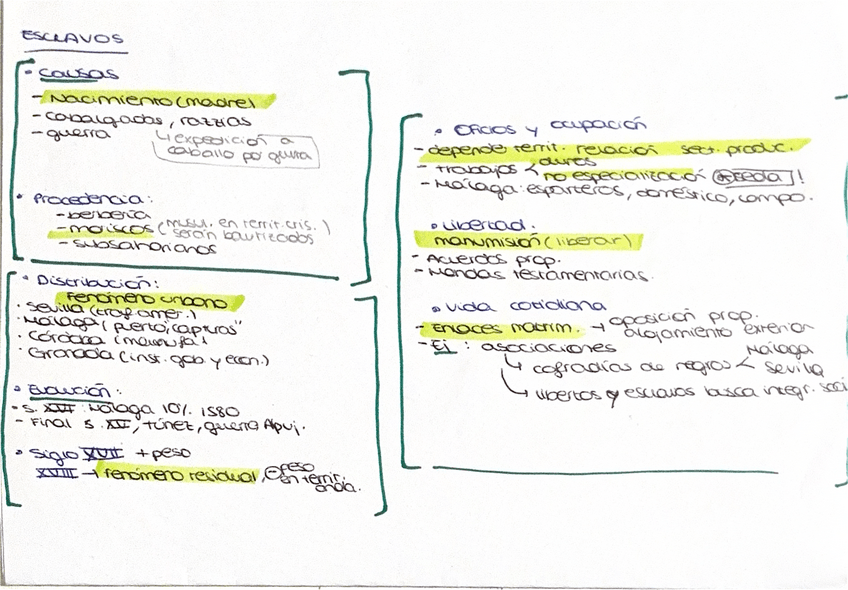 ESCLAVOS
• Causas
- Nacimiento (madre)
- cabalgadas, razzias
- guerra
↳ expedición a
caballo por guerra
• Procedencia:
- berbería
- moriscos (musul. en territ. cris.)
serán bautizados
- subsaharianos
• Distribución:
Fenómeno urbano
· Sevilla (traf. amer.)
· Málaga ("puerto, capturas"
· Córdoba (manufa)
· Granada (inst. gob y econ.)
• Evolución:
- S. XVI: Málaga 10% 1580
- Final S. XV, Túnez, guerra Apuj.
• Siglo XVII + peso
XVIII → fenómeno residual, ⊖ peso
en territ.
anda.
• Oficios y ocupación
- depende territ. relación sect. produc.
- trabajos < duros
no especialización (+ seda)!
- Málaga: esparteros, doméstico, campo.
• Libertad:
manumisión (liberar)
- Acuerdos prop.
- Mandas testamentarias.
• Vida cotidiana
- Enlaces matrim. → oposición prop.
alojamiento exterior
- Ej: asociaciones
↳ cofradías de negros < Málaga
Sevilla
↳ libertos y esclavos busca integr. soci